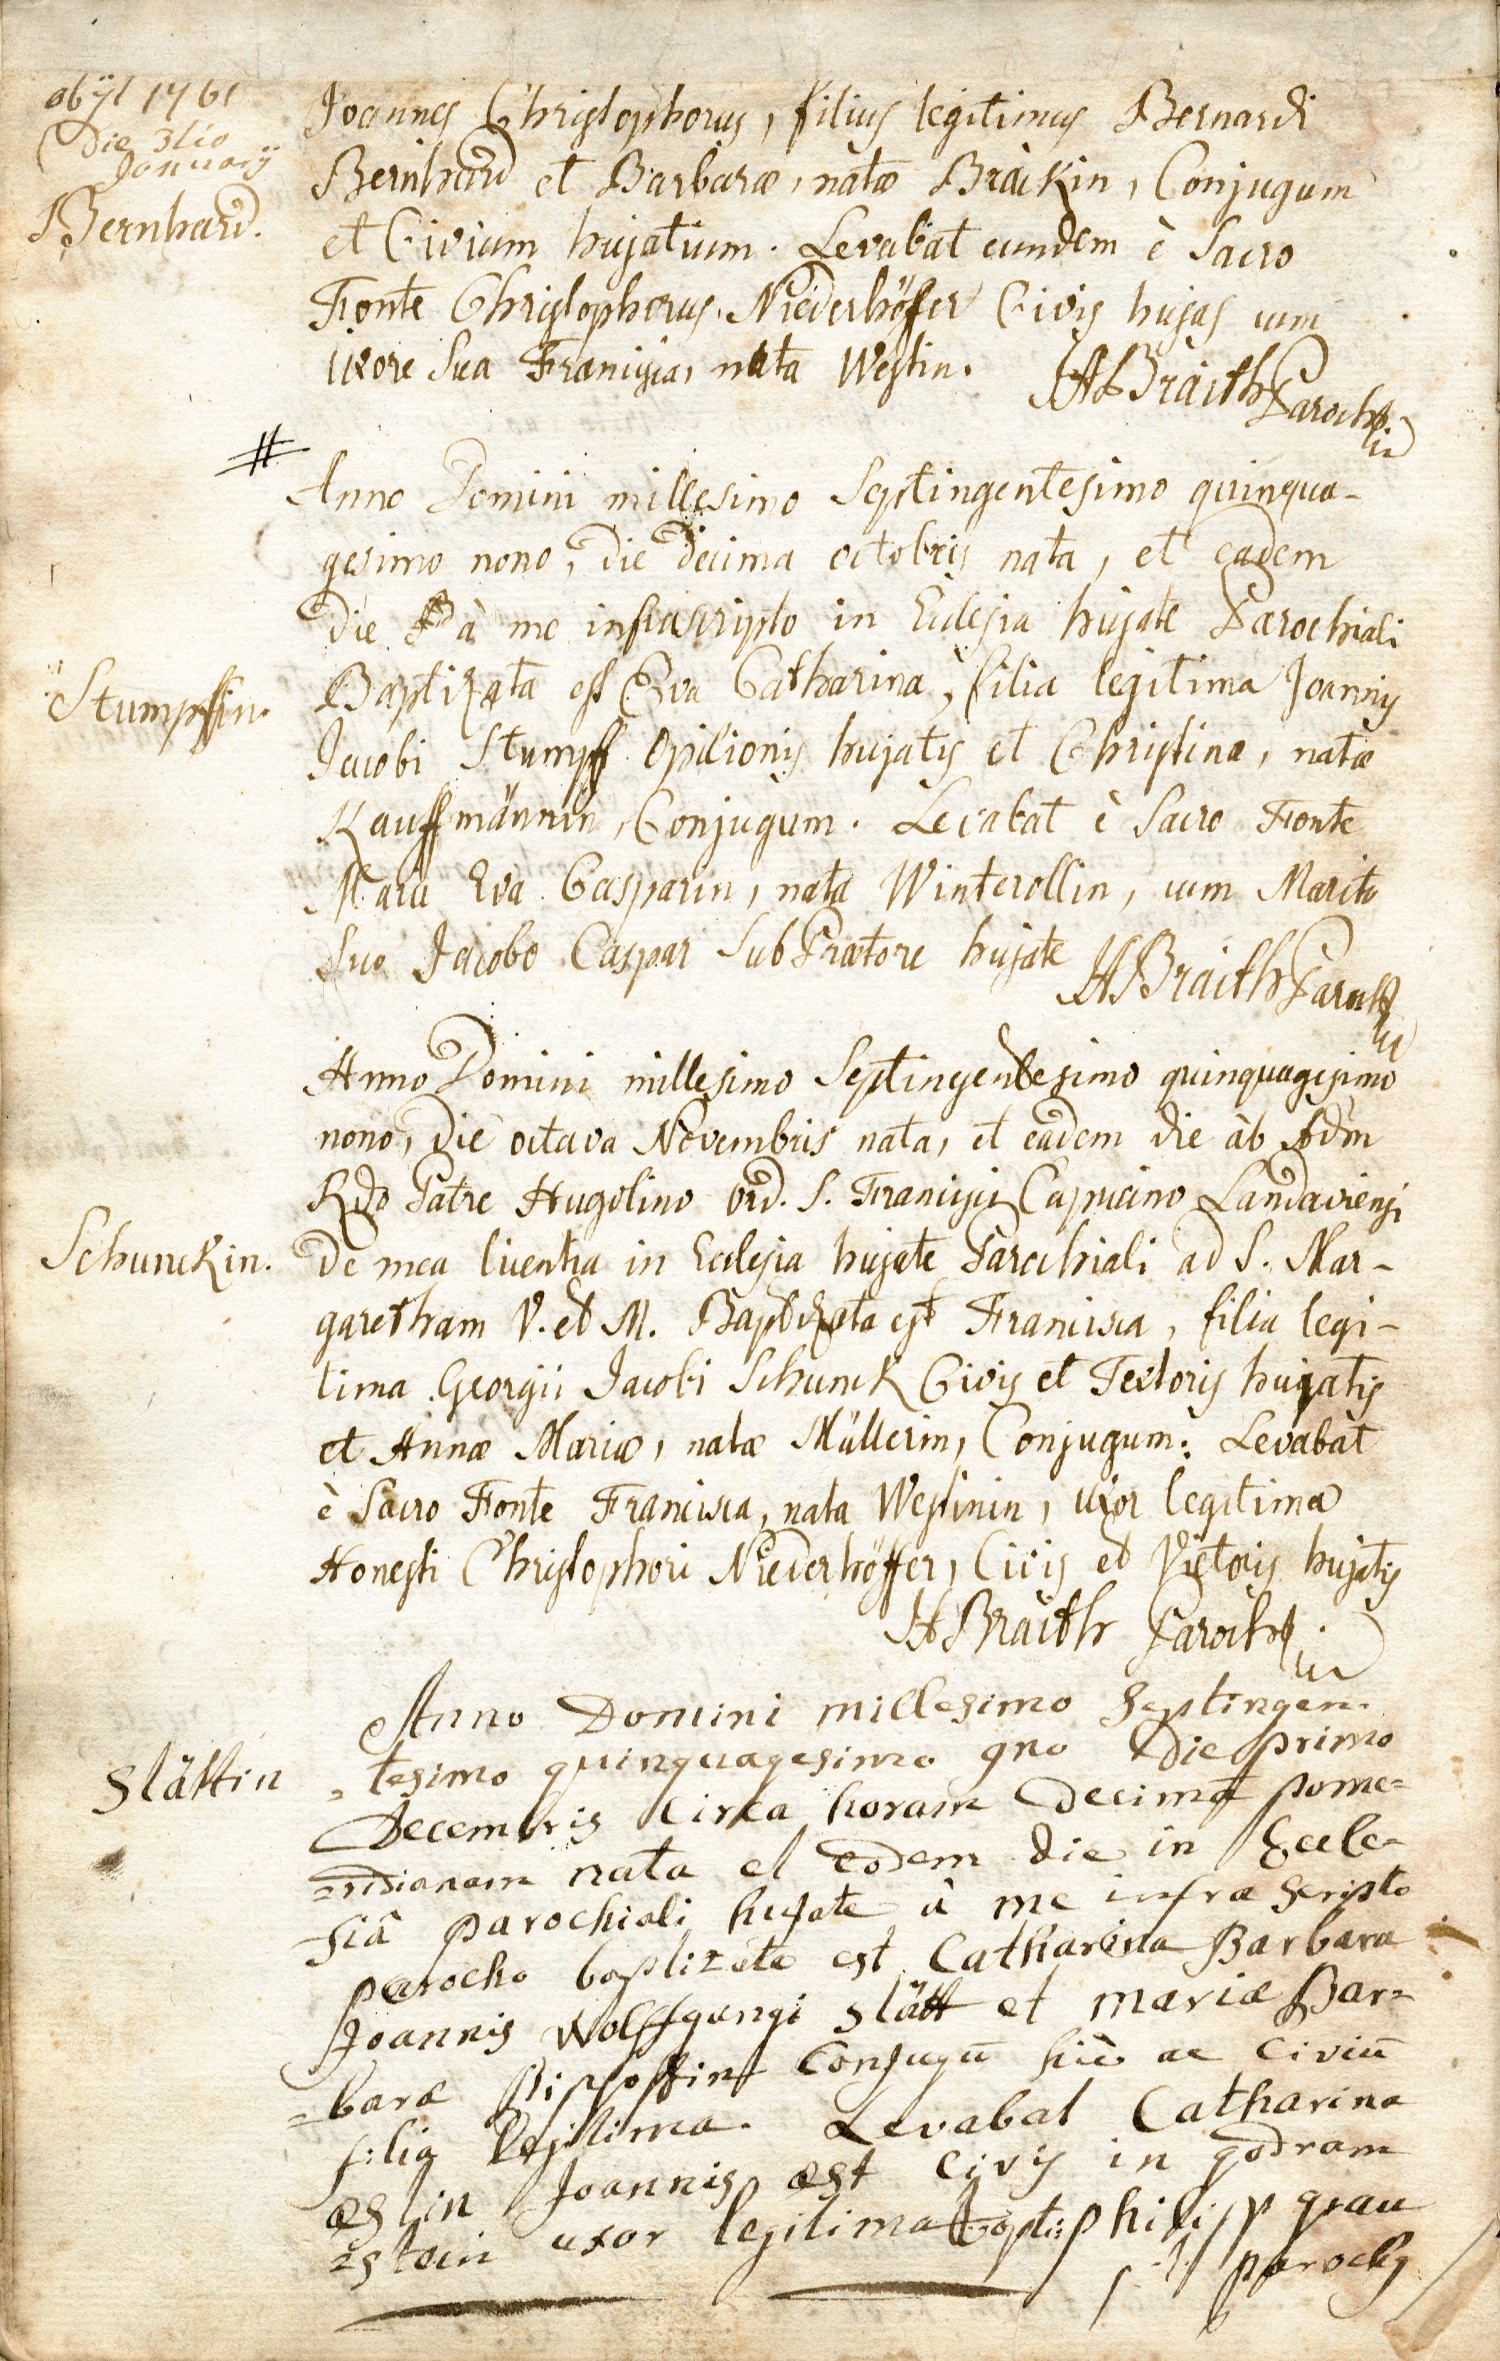 obijt 1761
Die 3tio
Januarij
Bernhard.
Joannes Christophorus, filius legitimus Bernardi
Bernhard et Barbaræ, natæ Bräikin, Conjugum
et Civium hujatium. Levabat eundem è Sacro
Fonte Christophorus Niederhöfer Civis hujas cum
uxore Sua Francisca, nata Westin.
HBraith Parochus
#
Anno Domini millesimo Septingentesimo quinqua-
gesimo nono, die decima octobris nata, et eadem
die à me infrascripto in Eclesia hujate Parochiali
Stumpffin.
Baptizata est Eva Catharina, filia legitima Joannis
Jacobi Stumpff Opilionis hujatis et Christinæ, natæ
Kauffmännin, Conjugum. Levabat è Sacro Fonte
Maria Eva Casparin, nata Winterollin, cum Marito
Suo Jacobo Caspar SubPrætore hujate
HBraith Paroch
Anno Domini millesimo Septingentesimo quinquagesimo
nono, die octava Novembris nata, et eadem die àb Adm
Rdo Patre Hugolino Ord. S. Francisci Capucino Landaviensi
Schunckin.
de mea licentia in Eclesia hujate Parochiali ad S. Mar-
garetham V. et M. Baptizata est Francisca, filia legi-
tima Georgii Jacobi Schunck Civis et Textoris hujatis
et Annæ Mariæ, natæ Müllerin, Conjugum: Levabat
è Sacro Fonte Francisca, nata Westinin, uxor legitima
Honesti Christophori Niederhöffer, Civis et Vietoris hujatis
HBraith Parochus
Anno Domini millesimo Septingen-
Slättin
tesimo quinquagesimo 9no die primo
Decembris Circa horam Decimam pome=
=ridianam nata et eodem die in Eccle-
siâ parochiali hujate à me infra Scripto
parocho baptizata est Catharina Barbara
Joannis Wolffgangi Slätt et mariæ Bar=
=baræ Conjugū hic ac Civiū
filia legitima. Levabat Catharina
æstin Joannis æst Civis in godram
=stein uxor legitima philipp grau
p.t. parochus